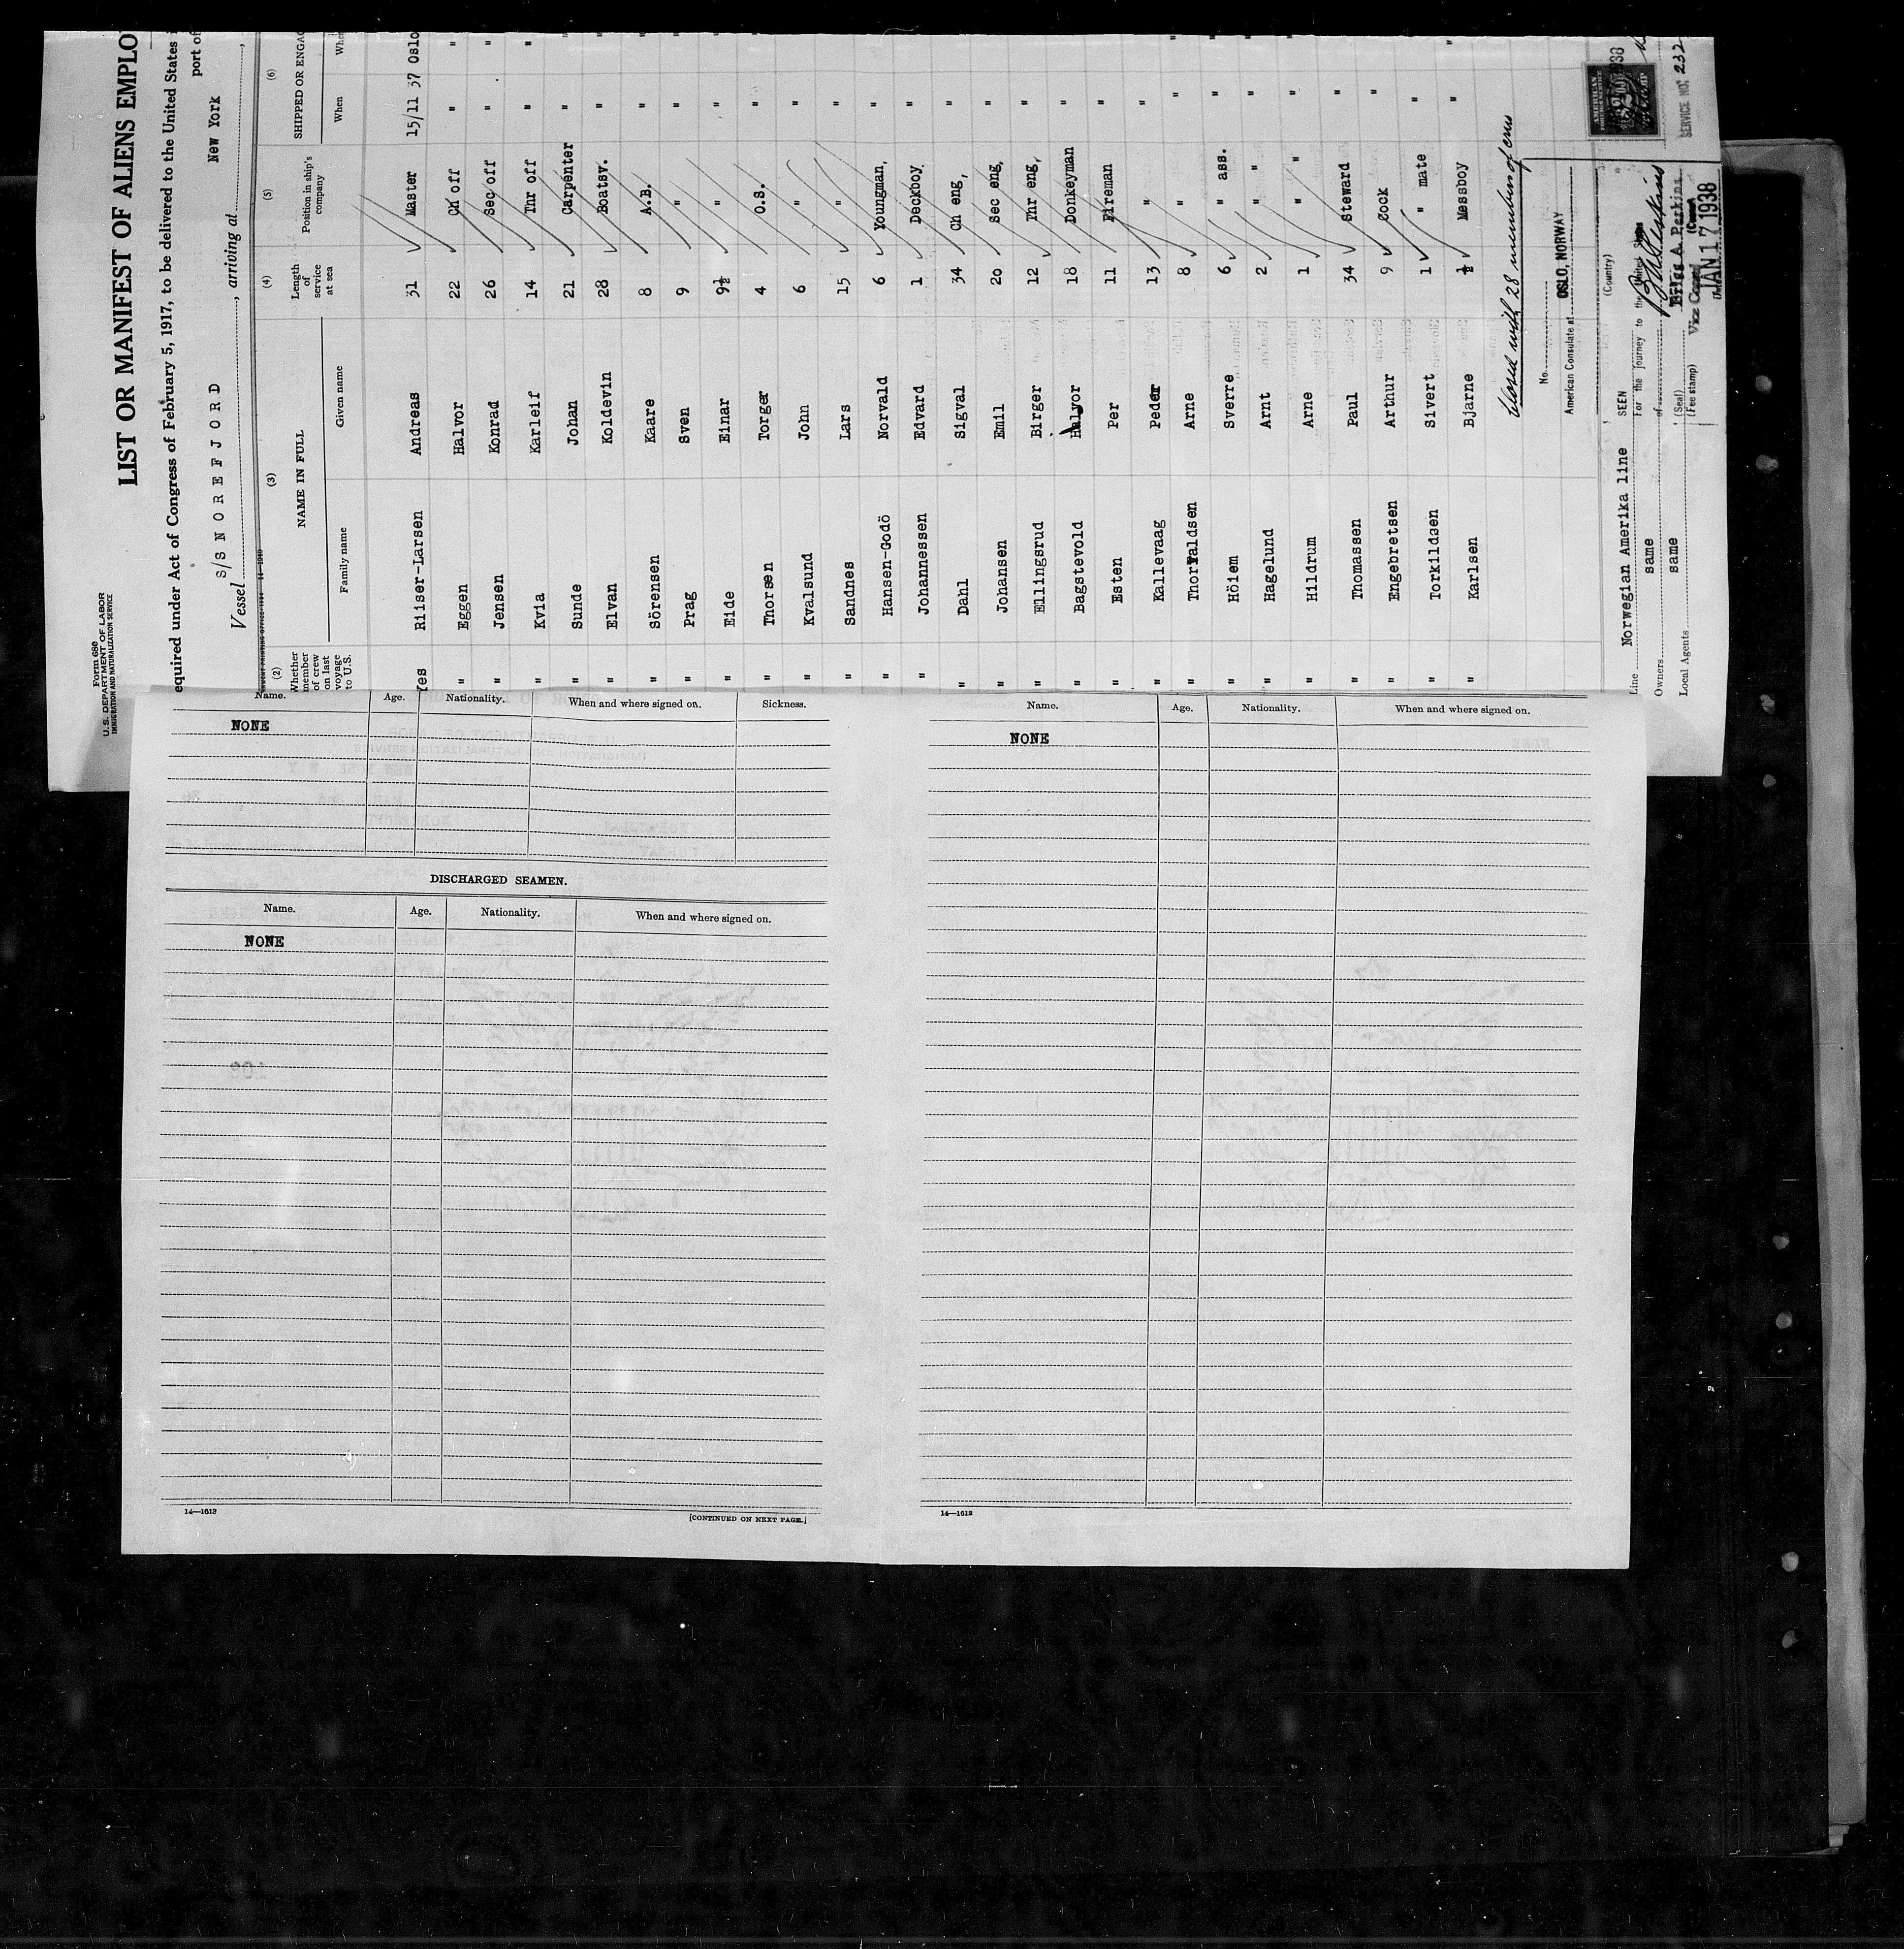 Form 680
U. S. DEPARTMENT OF LABOR
IMMIGRATION AND NATURALIZATION SERVICE
LIST OR MANIFEST OF ALIENS EMPLO
equired under Act of Congress of February 5, 1917, to be delivered to the United States
Vessel S/S NOREFJORD, arriving at New York port of
(2) (3) (4) (5) (6)
Whether member of crew on last voyage to U.S. NAME IN FULL Length of service at sea Position in ship's company SHIPPED OR ENGAG
Family name Given name When Whe
Yes Riiser-Larsen Andreas 31 Master 15/11 37 Oslo
" Eggen Halvor 22 Ch off " "
" Jensen Konrad 26 Sec off " "
" Kvia Karleif 14 Thr off " "
" Sunde Johan 21 Carpenter " "
" Elvan Koldevin 28 Boatsv. " "
" Sörensen Kaare 8 A.B. " "
" Prag Sven 9 " " "
" Eide Einar 9½ " " "
" Thorsen Torger 4 O.S. " "
" Kvalsund John 6 " " "
" Sandnes Lars 15 " " "
" Hansen-Godö Norvald 6 Youngman, " "
" Johannessen Edvard 1 Deckboy " "
" Dahl Sigval 34 Ch eng, " "
" Johansen Emil 20 Sec eng, " "
" Ellingsrud Birger 12 Thr eng, " "
" Bagstevold Halvor 18 Donkeyman " "
" Esten Per 11 Fireman "
" Kallevaag Peder 13 " " "
" Thorvaldsen Arne 8 " " "
" Höiem Sverre 6 " ass. " "
" Hagelund Arnt 2 " " " "
" Hildrum Arne 1 " " " "
" Thomassen Paul 34 Steward " "
" Engebretsen Arthur 9 Cock " "
" Torkildsen Sivert 1 " mate "
" Karlsen Bjarne ½ Messboy " "
Closed with 28 members of crew
No.
American Consulate at OSLO, NORWAY
(Country)
Line Norwegian Amerika line
Owners same
Local Agents same
SEEN
For the journey to the United States
(Seal)
(Fee stamp)
Brigg A. Perkins
Vice Consul
JAN 17 1938
AMERICAN
SERVICE NO. 232
Name. Age. Nationality. When and where signed on. Sickness.
NONE
DISCHARGED SEAMEN.
Name. Age. Nationality. When and where signed on.
NONE
14—1612
[CONTINUED ON NEXT PAGE.]
Name. Age. Nationality. When and where signed on.
NONE
14—1612